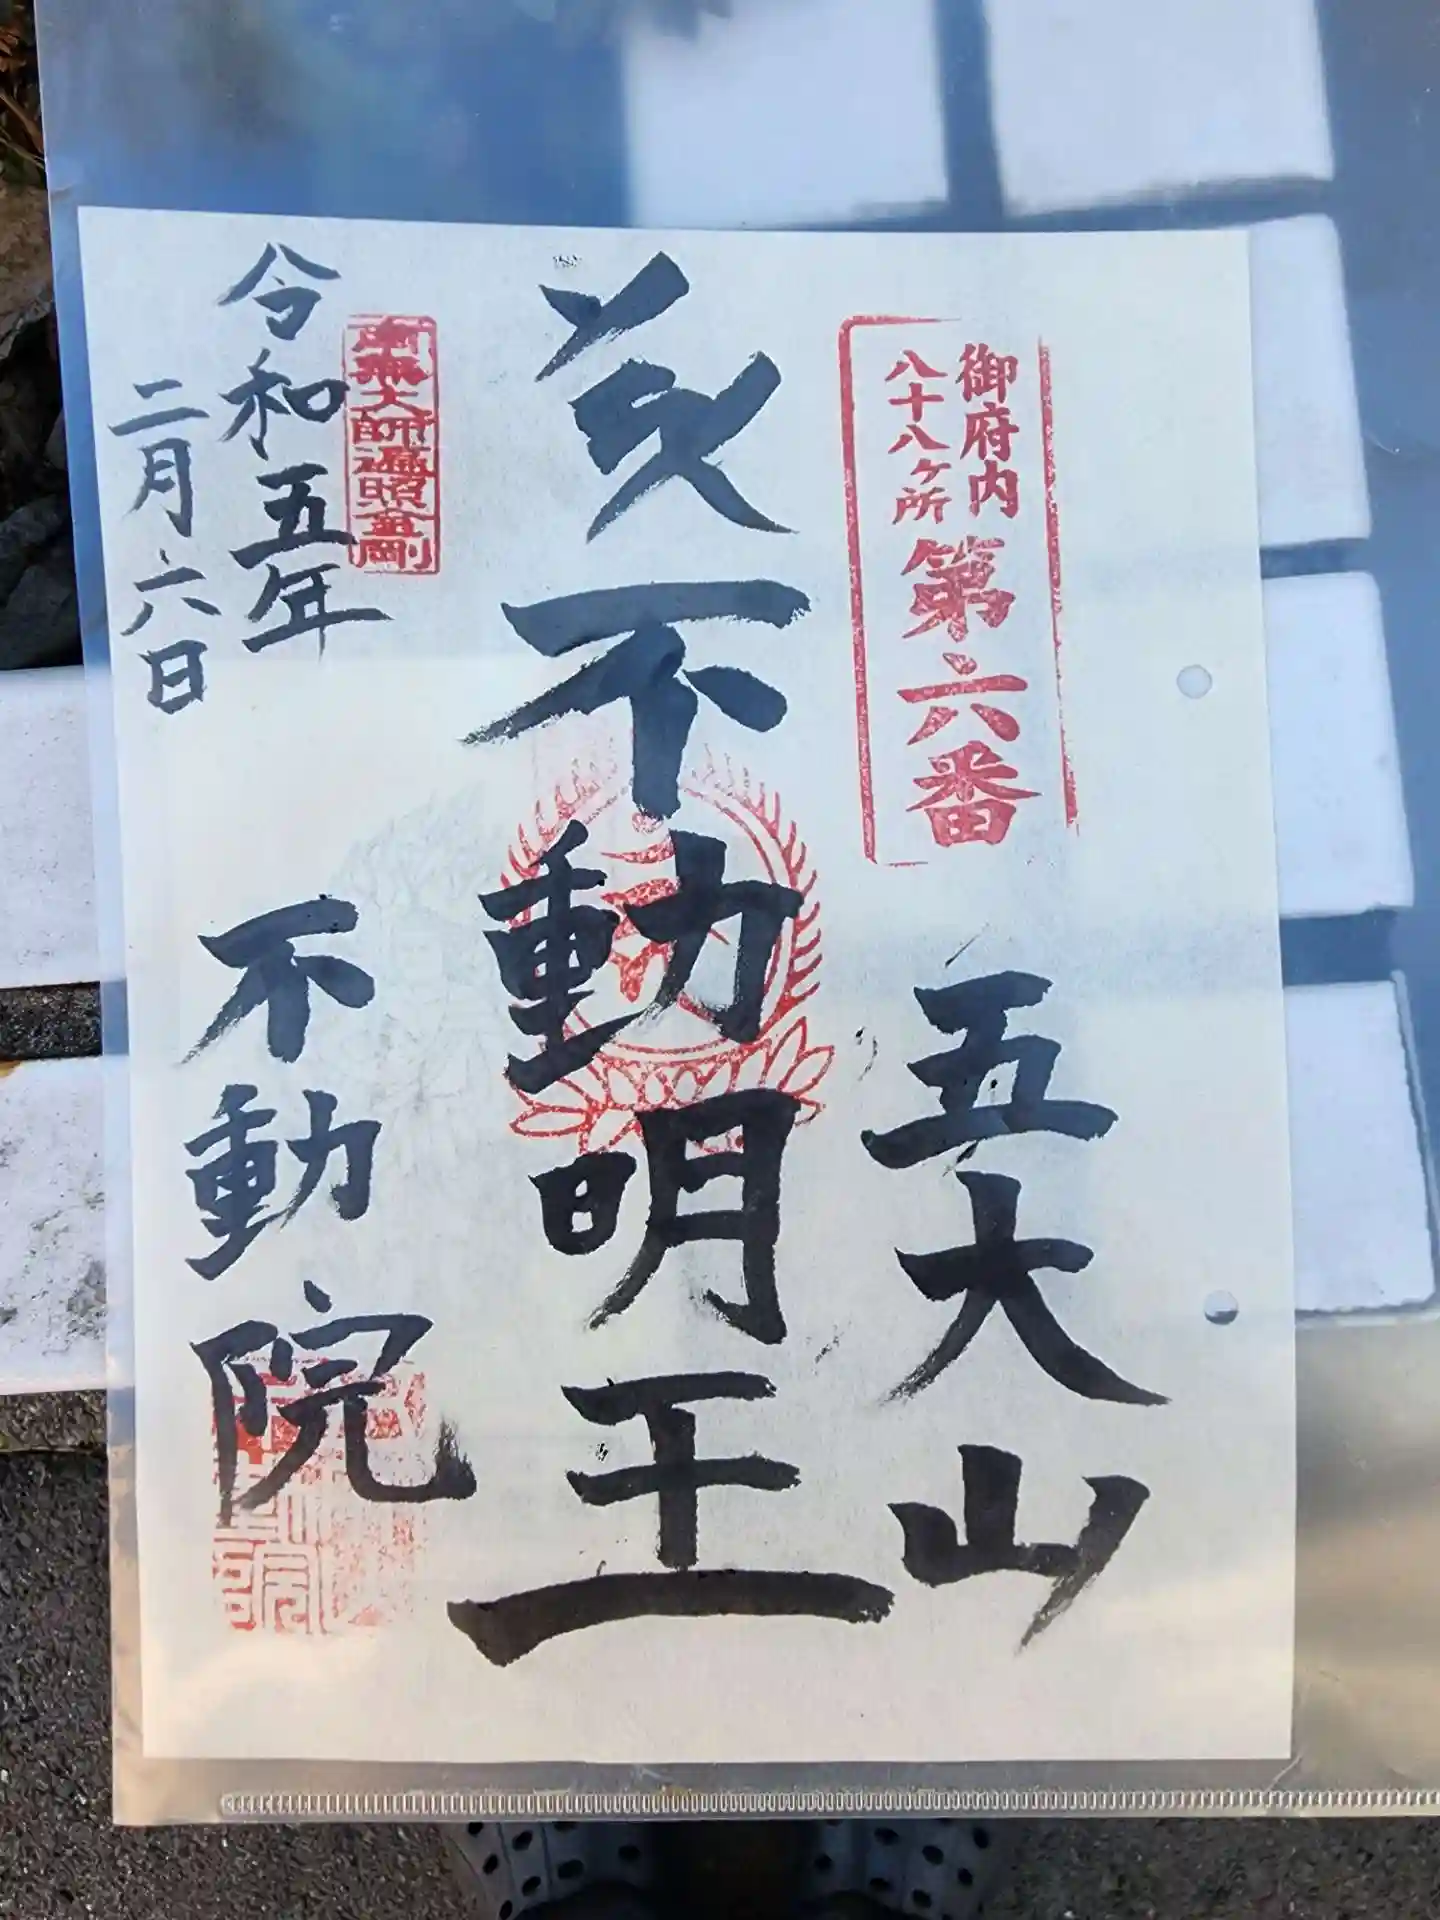 御府内
八十八ヶ所
第六番
五大山
不動明王
南無大師遍照金剛
令和五年
二月六日
不動院